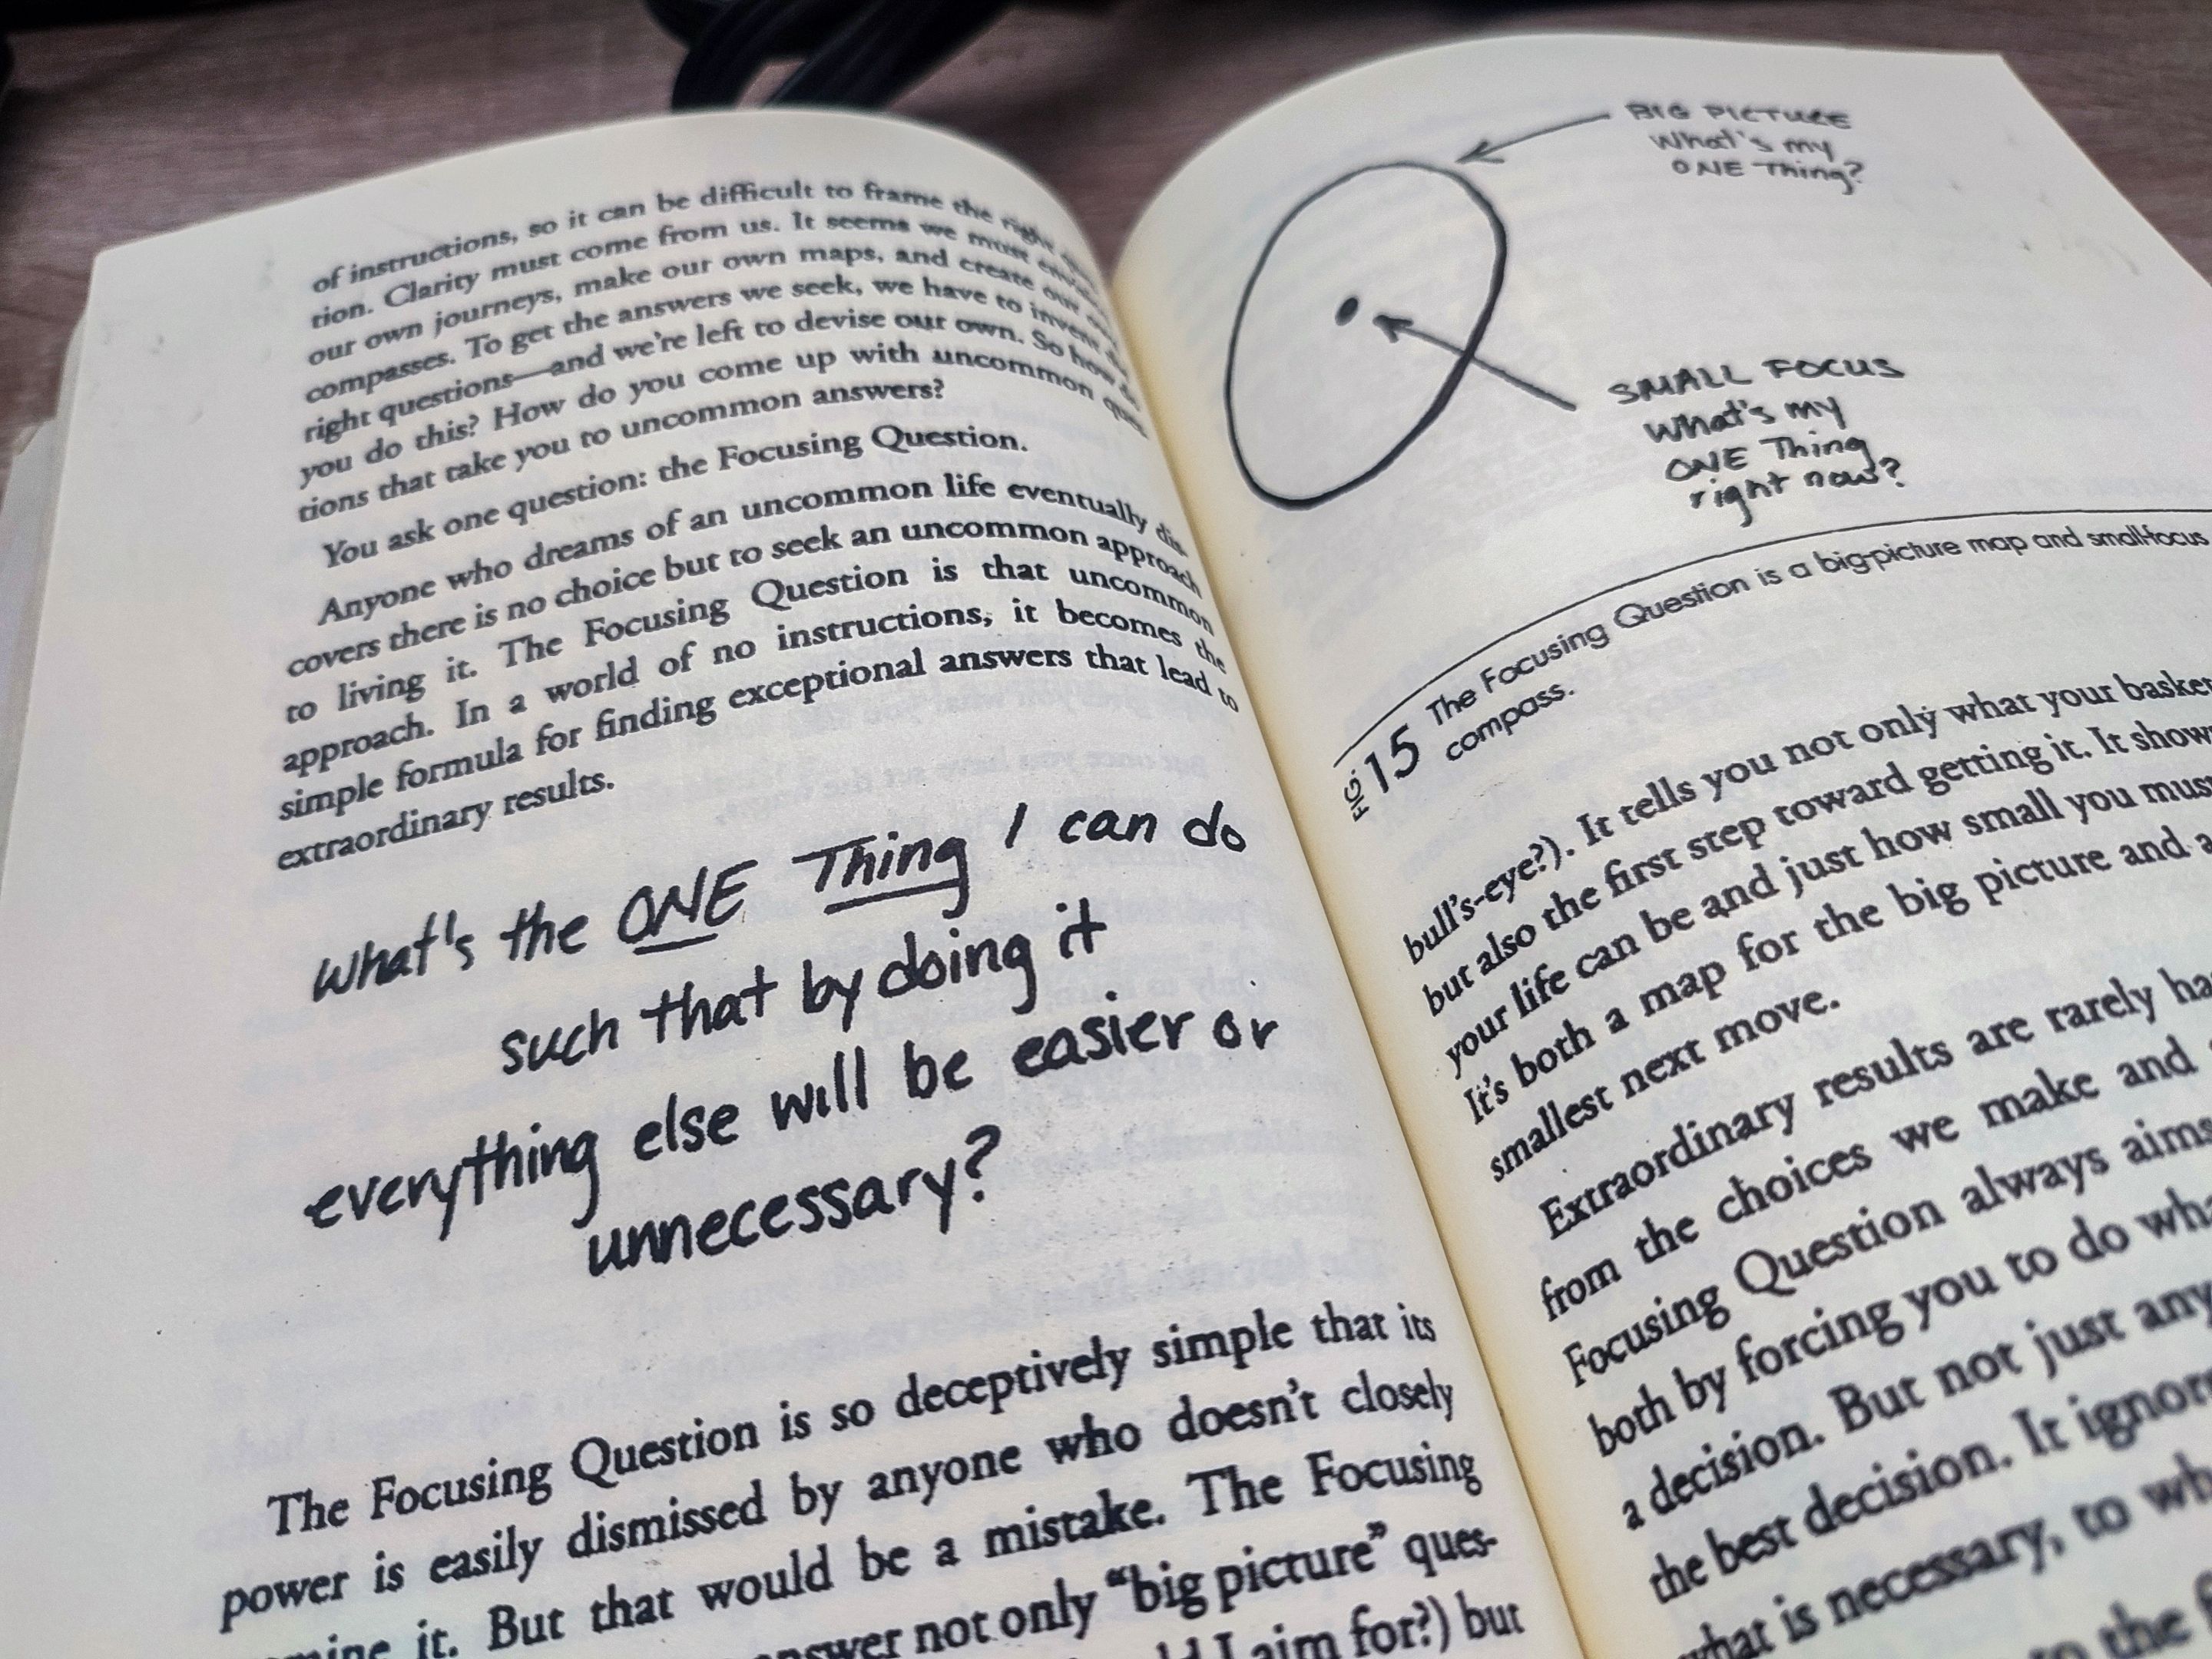 of instructions, so it can be difficult to frame the right
tion. Clarity must come from us. It seems we must
our own journeys, make our own maps, and create our
compasses. To get the answers we seek, we have to invent
right questions—and we're left to devise our own. So how do
you do this? How do you come up with uncommon ques-
tions that take you to uncommon answers?
You ask one question: the Focusing Question.
Anyone who dreams of an uncommon life eventually dis-
covers there is no choice but to seek an uncommon approach
to living it. The Focusing Question is that uncommon
approach. In a world of no instructions, it becomes the
simple formula for finding exceptional answers that lead to
extraordinary results.
What's the ONE Thing I can do
such that by doing it
everything else will be easier or
unnecessary?
The Focusing Question is so deceptively simple that its
power is easily dismissed by anyone who doesn't closely
it. But that would be a mistake. The Focusing
answer not only "big picture" ques-
I aim for?) but
BIG PICTURE
What's my
ONE Thing?
SMALL FOCUS
What's my
ONE Thing
right now?
FIG. 15 The Focusing Question is a big-picture map and small-focus
compass.
bull's-eye?). It tells you not only what your basket
but also the first step toward getting it. It shows
your life can be and just how small you must
It's both a map for the big picture and a
smallest next move.
Extraordinary results are rarely
from the choices we make and
Focusing Question always aims
both by forcing you to do what
a decision. But not just any
the best decision. It ignores
what is necessary, to
to the